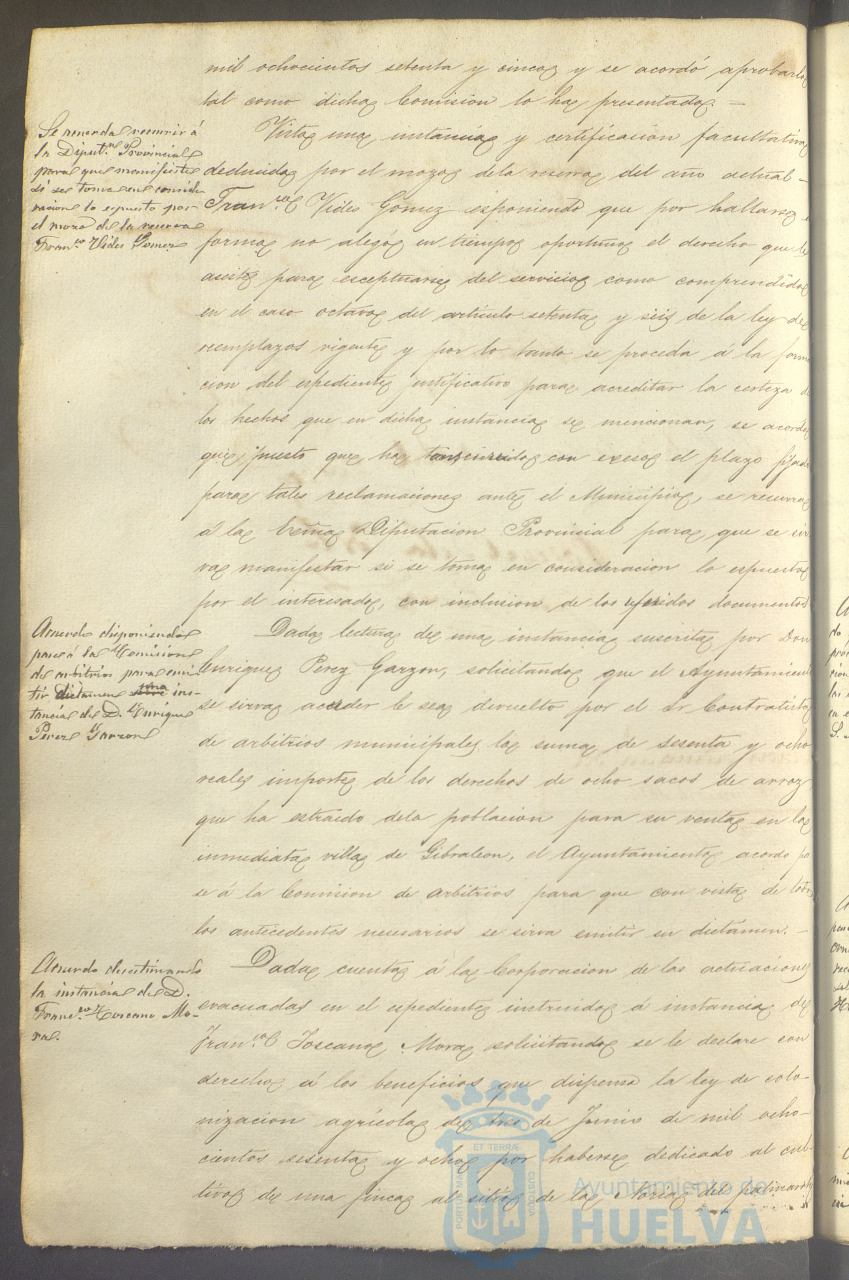 mil ochocientos setenta y cinco y se acordó aprobarlo
tal como dicha Comision lo ha presentado. —
Se acuerda recurrir á
la Diput.ⁿ Provincial
para que manifieste
si se toma en conside
racion lo espuesto por
el mozo de la reserva
Fran.ᶜᵒ Vides Gomez
Vista una instancia y certificacion facultativa
deducida por el mozo de la reserva del año actual
Fran.ᶜᵒ Vides Gomez esponiendo que por hallarse
no alegó en tiempo oportuno el derecho que le
asiste para esceptuarse del servicio como comprendido
en el caso octavo del artículo setenta y seis de la ley de
reemplazos vigente y por lo tanto se proceda á la forma
cion del espediente justificativo para acreditar la certeza de
los hechos que en dicha instancia se mencionan, se acordó
que puesto que ha transcurrido con exeso el plazo fijado
para tales reclamaciones ante el Municipio, se recurra
á la Diputacion Provincial para que se sir
va manifestar si se toma en consideracion lo espuesto
por el interesado, con inclusion de los referidos documentos
Acuerdo disponiendo
pase á la Comision
de arbitrios para emi
tir dictamen ins-
tancia de D. Enrique
Perez Garzon
Dada lectura de una instancia suscrita por Don
Enrique Perez Garzon, solicitando que el Ayuntamiento
se sirva acceder le sea devuelto por el Sr Contratista
de arbitrios municipales la suma de sesenta y ocho
reales importe de los derechos de ocho sacos de arroz
que ha estraido de la poblacion para su venta en la
inmediata villa de Gibraleon, el Ayuntamiento acordó pa
se á la Comision de arbitrios para que con vista de todos
los antecedentes necesarios se sirva emitir su dictámen. —
Acuerdo desestimando
la instancia de D.
Franc.ᶜᵒ Toscano Mo-
ra.
Dada cuenta á la Corporacion de las actuaciones
evacuadas en el espediente instruido á instancia de
Fran.ᶜᵒ Toscano Mora solicitando se le declare con
derecho á los beneficios que dispensa la ley de colo-
nizacion agrícola de tres de Junio de mil ocho-
cientos sesenta y ocho por haberse dedicado al cul-
tivo de una finca al sitio de la del
PORTUS MARIS ET TERRÆ CUSTODIA
Ayuntamiento de
HUELVA